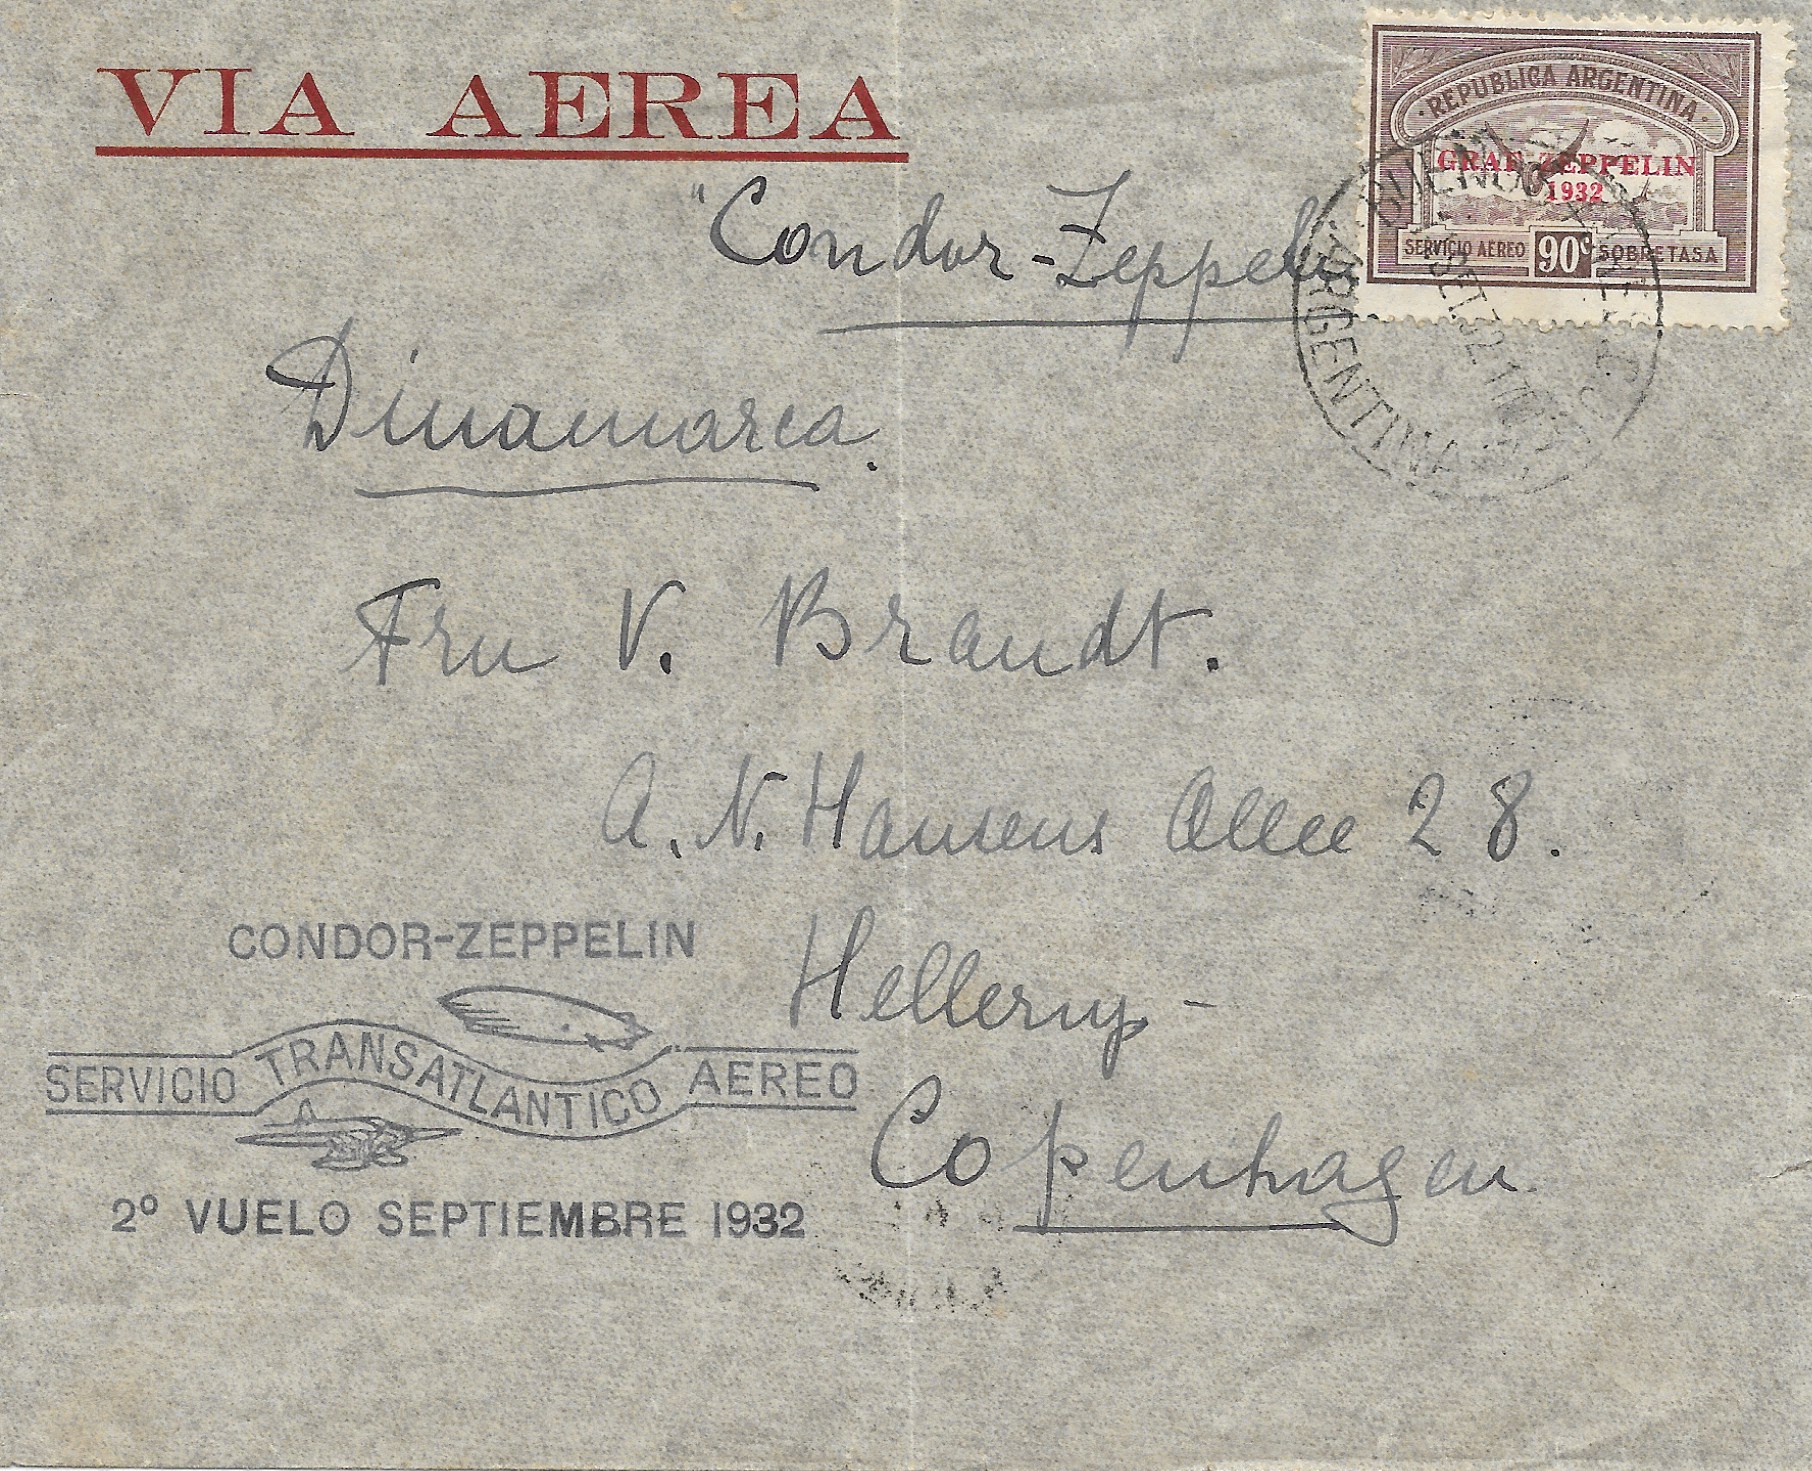 VIA AEREA
REPUBLICA ARGENTINA
GRAF ZEPPELIN
1932
SERVICIO AEREO 90c SOBRETASA
BUENOS AIRES
SET. 32 17
ARGENTINA
"Condor-Zeppelin
Dinamarca.
Fru V. Brandt.
A. N. Hansens Allee 28.
Hellerup-
Copenhagen
CONDOR-ZEPPELIN
SERVICIO TRANSATLANTICO AEREO
2º VUELO SEPTIEMBRE 1932